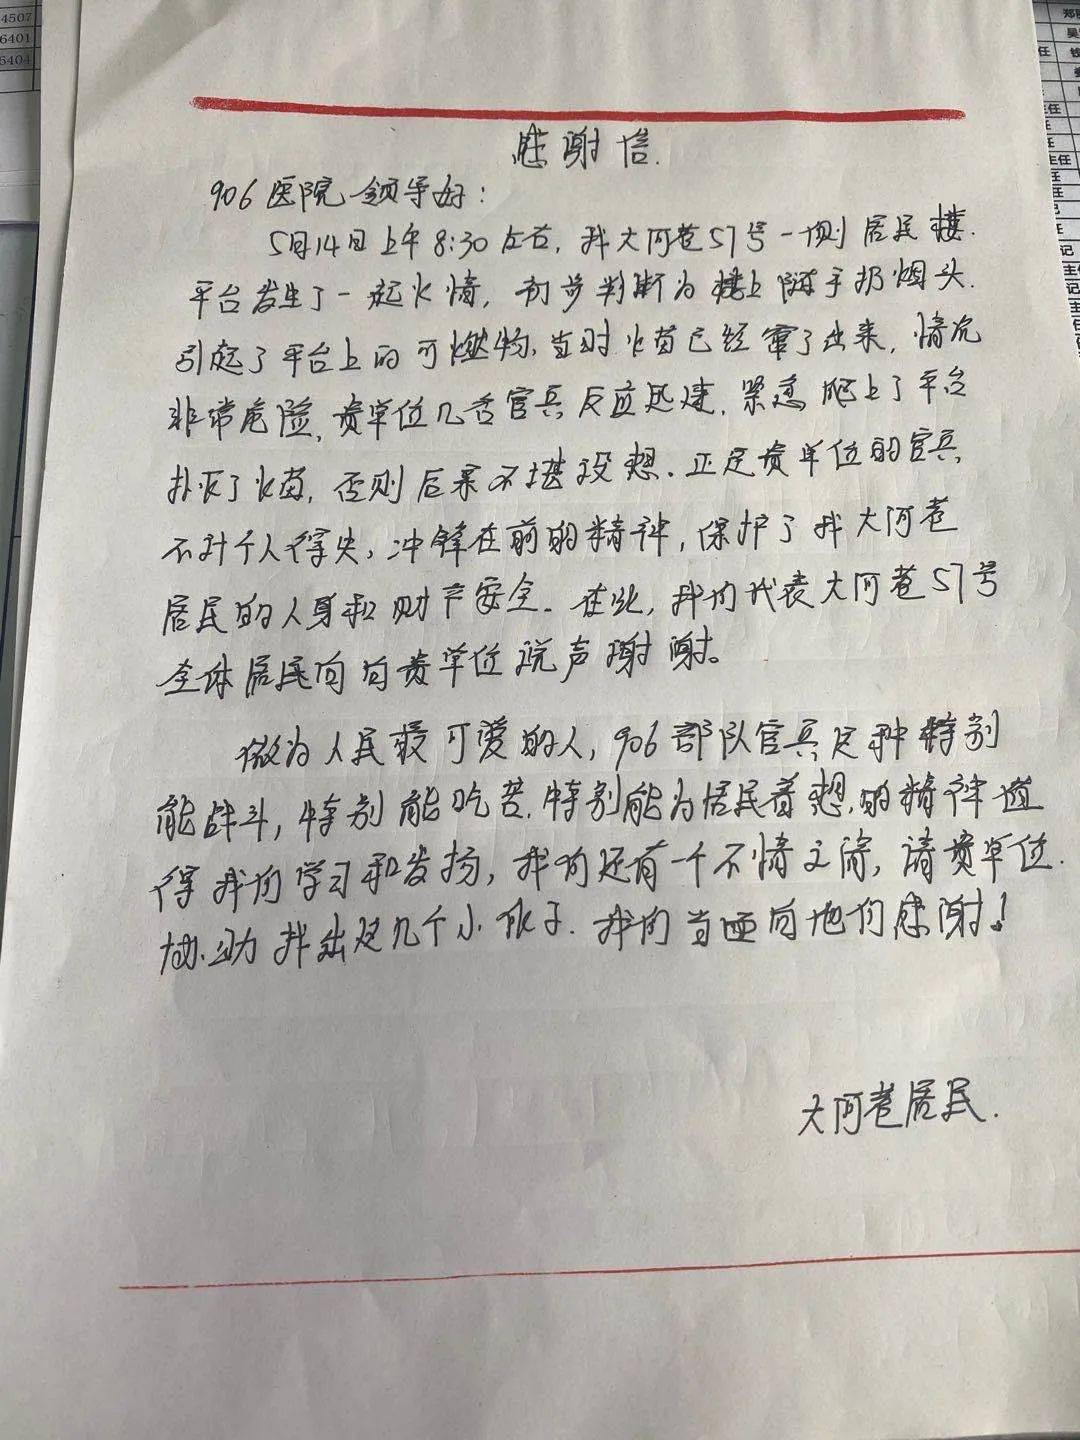 感谢信.
906医院领导好:
5月14日上午8:30左右,我大河巷57号一侧居民楼.
平台发生了一起火情,初步判断为楼上随手扔烟头.
引起了平台上的可燃物,当时火苗已经窜了出来,情况
非常危险,贵单位几名官兵反应迅速,紧急爬上了平台
扑灭了火苗,否则后果不堪设想.正是贵单位的官兵
不计个人得失,冲锋在前的精神,保护了我大河巷
居民的人身和财产安全.在此,我们代表大河巷57号
全体居民向贵单位说声谢谢。
做为人民最可爱的人,906部队官兵这种特别
能战斗,特别能吃苦.特别能为居民着想,的精神值
得我们学习和发扬,我们还有一个不情之请,请贵单位.
协助找出这几个小伙子.我们当面向他们感谢!
大河巷居民.
4507
6401
6404
主任
任
任
记